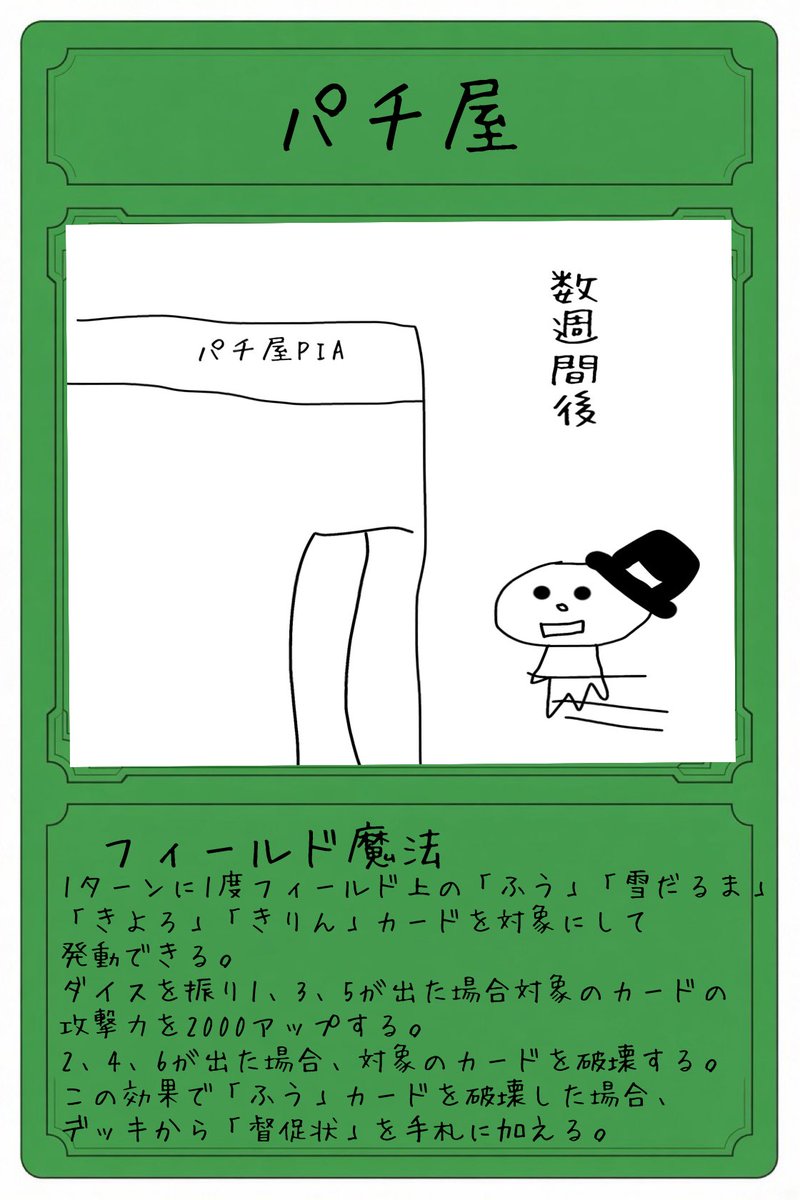 パチ屋
数週間後
パチ屋PIA
フィールド魔法
1ターンに1度フィールド上の「ふう」「雪だるま」
「きよろ」「きりん」カードを対象にして
発動できる。
ダイスを振り1、3、5が出た場合対象のカードの
攻撃力を2000アップする。
2、4、6が出た場合、対象のカードを破壊する。
この効果で「ふう」カードを破壊した場合、
デッキから「督促状」を手札に加える。